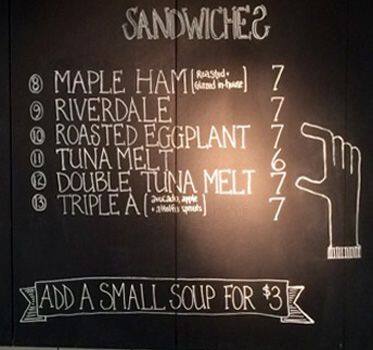 SANDWICHES
8 MAPLE HAM [Roasted + Glazed in-house] 7
9 RIVERDALE 7
10 ROASTED EGGPLANT 7
11 TUNA MELT 6
12 DOUBLE TUNA MELT 7
13 TRIPLE A [avocado, apple + alfalfa sprouts] 7
ADD A SMALL SOUP FOR $3